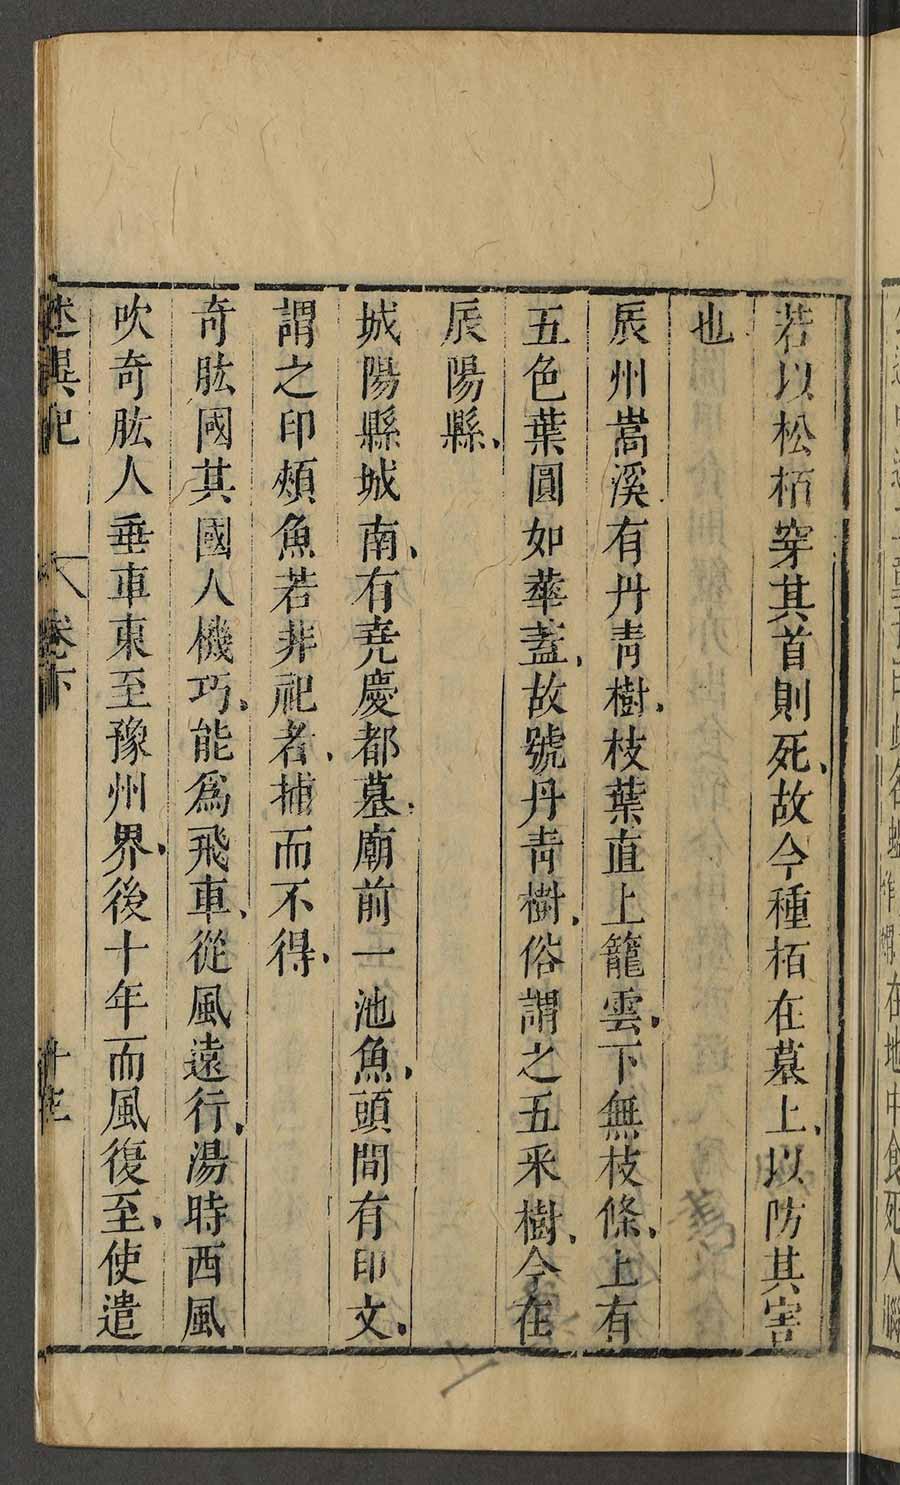 若以松栢穿其首則死故今種栢在墓上以防其害
也
辰州嵩溪有丹青樹枝葉直上籠雲下無枝條上有
五色葉圓如華蓋故號丹青樹俗謂之五采樹今在
辰陽縣
城陽縣城南有堯慶都墓廟前一池魚頭間有印文
謂之印頰魚若非祀者捕而不得
奇肱國其國人機巧能為飛車從風遠行湯時西風
吹奇肱人垂車東至豫州界後十年而風復至使遣
述異記 卷下